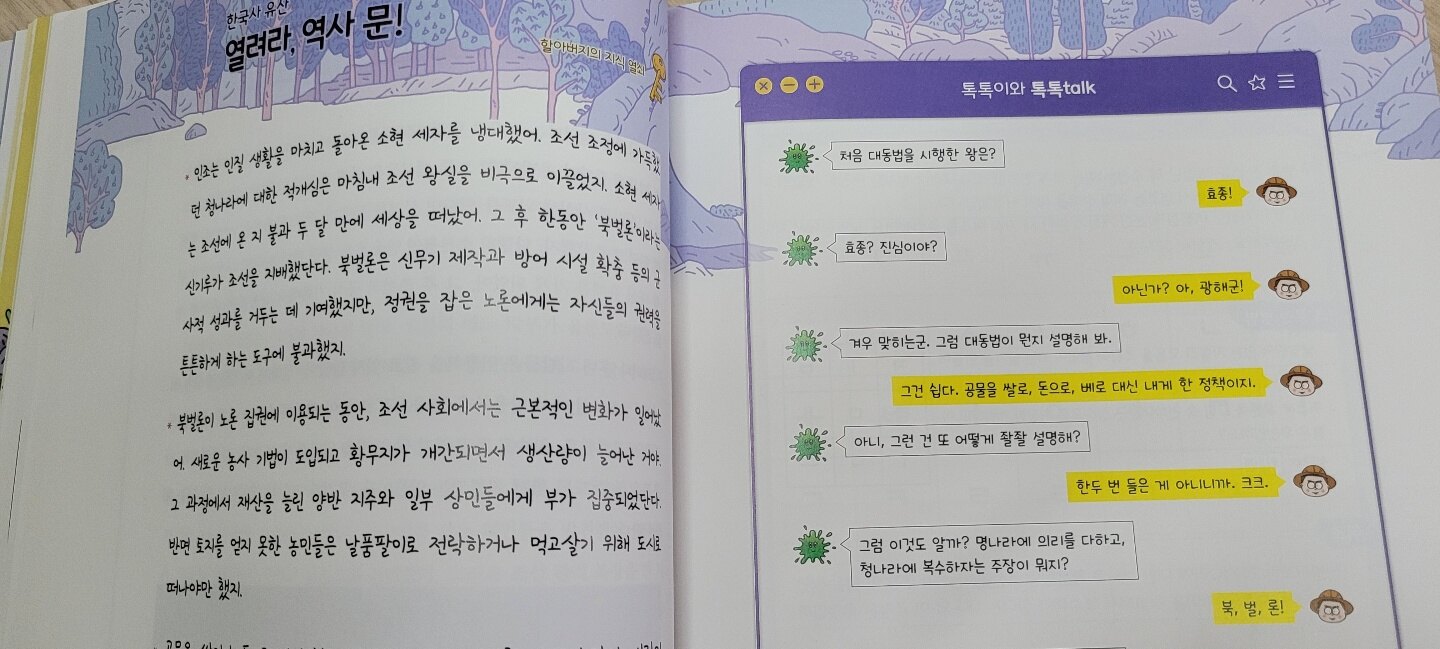 한국사 유산
열려라, 역사 문!
할아버지의 지식 열쇠
* 인조는 인질 생활을 마치고 돌아온 소현 세자를 냉대했어. 조선 조정에 가득했
던 청나라에 대한 적개심은 마침내 조선 왕실을 비극으로 이끌었지. 소현 세자
는 조선에 온 지 불과 두 달 만에 세상을 떠났어. 그 후 한동안 ‘북벌론’이라는
신기루가 조선을 지배했단다. 북벌론은 신무기 제작과 방어 시설 확충 등의 군
사적 성과를 거두는 데 기여했지만, 정권을 잡은 노론에게는 자신들의 권력을
튼튼하게 하는 도구에 불과했지.
* 북벌론이 노론 집권에 이용되는 동안, 조선 사회에서는 근본적인 변화가 일어났
어. 새로운 농사 기법이 도입되고 황무지가 개간되면서 생산량이 늘어난 거야.
그 과정에서 재산을 늘린 양반 지주와 일부 상민들에게 부가 집중되었단다.
반면 토지를 얻지 못한 농민들은 날품팔이로 전락하거나 먹고살기 위해 도시로
떠나야만 했지.
톡톡이와 톡톡talk
처음 대동법을 시행한 왕은?
효종!
효종? 진심이야?
아닌가? 아, 광해군!
겨우 맞히는군. 그럼 대동법이 뭔지 설명해 봐.
그건 쉽다. 공물을 쌀로, 돈으로, 베로 대신 내게 한 정책이지.
아니, 그런 건 또 어떻게 좔좔 설명해?
한두 번 들은 게 아니니까. 크크.
그럼 이것도 알까? 명나라에 의리를 다하고,
청나라에 복수하자는 주장이 뭐지?
북, 벌, 론!